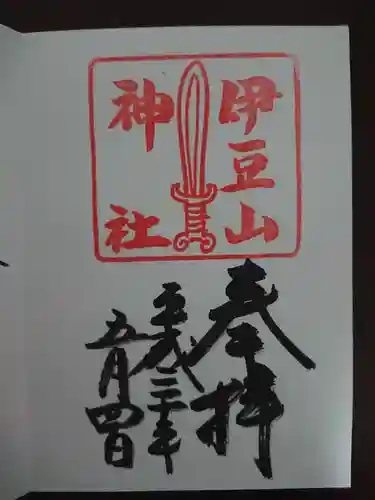 伊豆山
神社
奉拝
平成二十年
五月四日